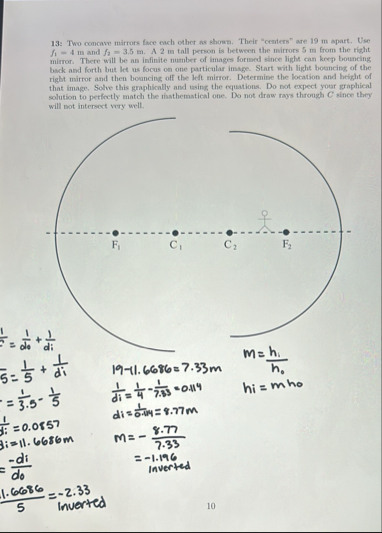 13: Two concave mirrors face each other as shown. Their "centers" are 19 m apart. Use
f₁ = 4 m and f₂ = 3.5 m. A 2 m tall person is between the mirrors 5 m from the right
mirror. There will be an infinite number of images formed since light can keep bouncing
back and forth but let us focus on one particular image. Start with light bouncing of the
right mirror and then bouncing off the left mirror. Determine the location and height of
that image. Solve this graphically and using the equations. Do not expect your graphical
solution to perfectly match the mathematical one. Do not draw rays through C since they
will not intersect very well.
F₁ C₁ C₂ F₂
= 1/do + 1/di
5 = 1/5 + 1/di
= 1/3.5 - 1/5
di = 0.0857
di = 11.6686m
= -di/do
11.6686/5 = -2.33
Inverted
19-11.6686 = 7.33m
1/di = 1/4 - 1/7.33 = 0.114
di = 1/0.114 = 8.77m
m = - 8.77/7.33
= -1.196
Inverted
m = hi/ho
hi = mho
10